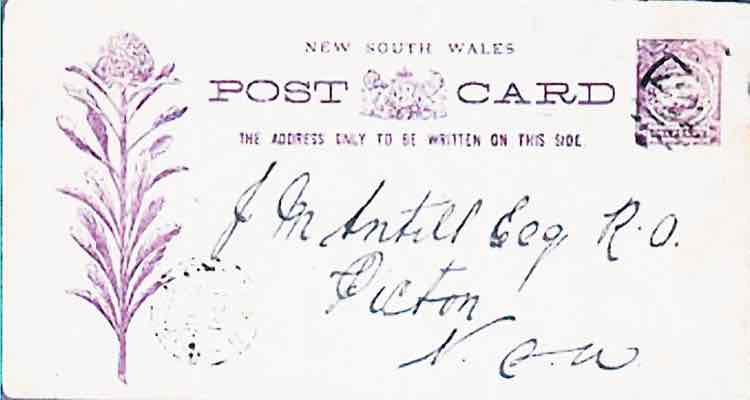 NEW SOUTH WALES
POST CARD
THE ADDRESS ONLY TO BE WRITTEN ON THIS SIDE.
J M Antill Esq R.O.
Picton
N.S.W